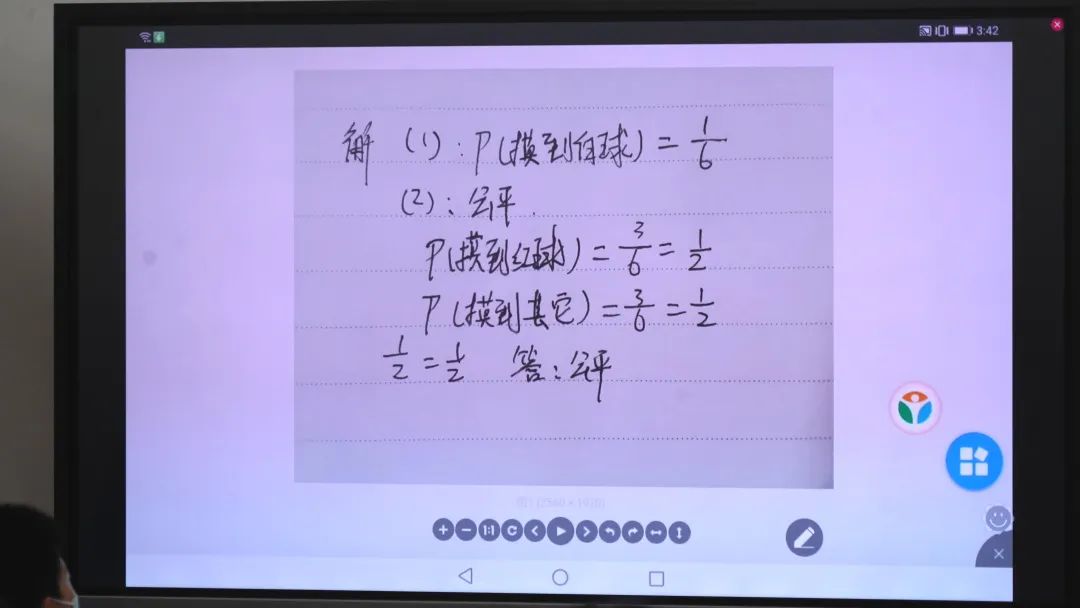 3:42
解 (1): P(摸到白球) = 1/6
(2): 公平.
P(摸到红球) = 3/6 = 1/2
P(摸到其它) = 3/6 = 1/2
1/2 = 1/2 答: 公平
1:1